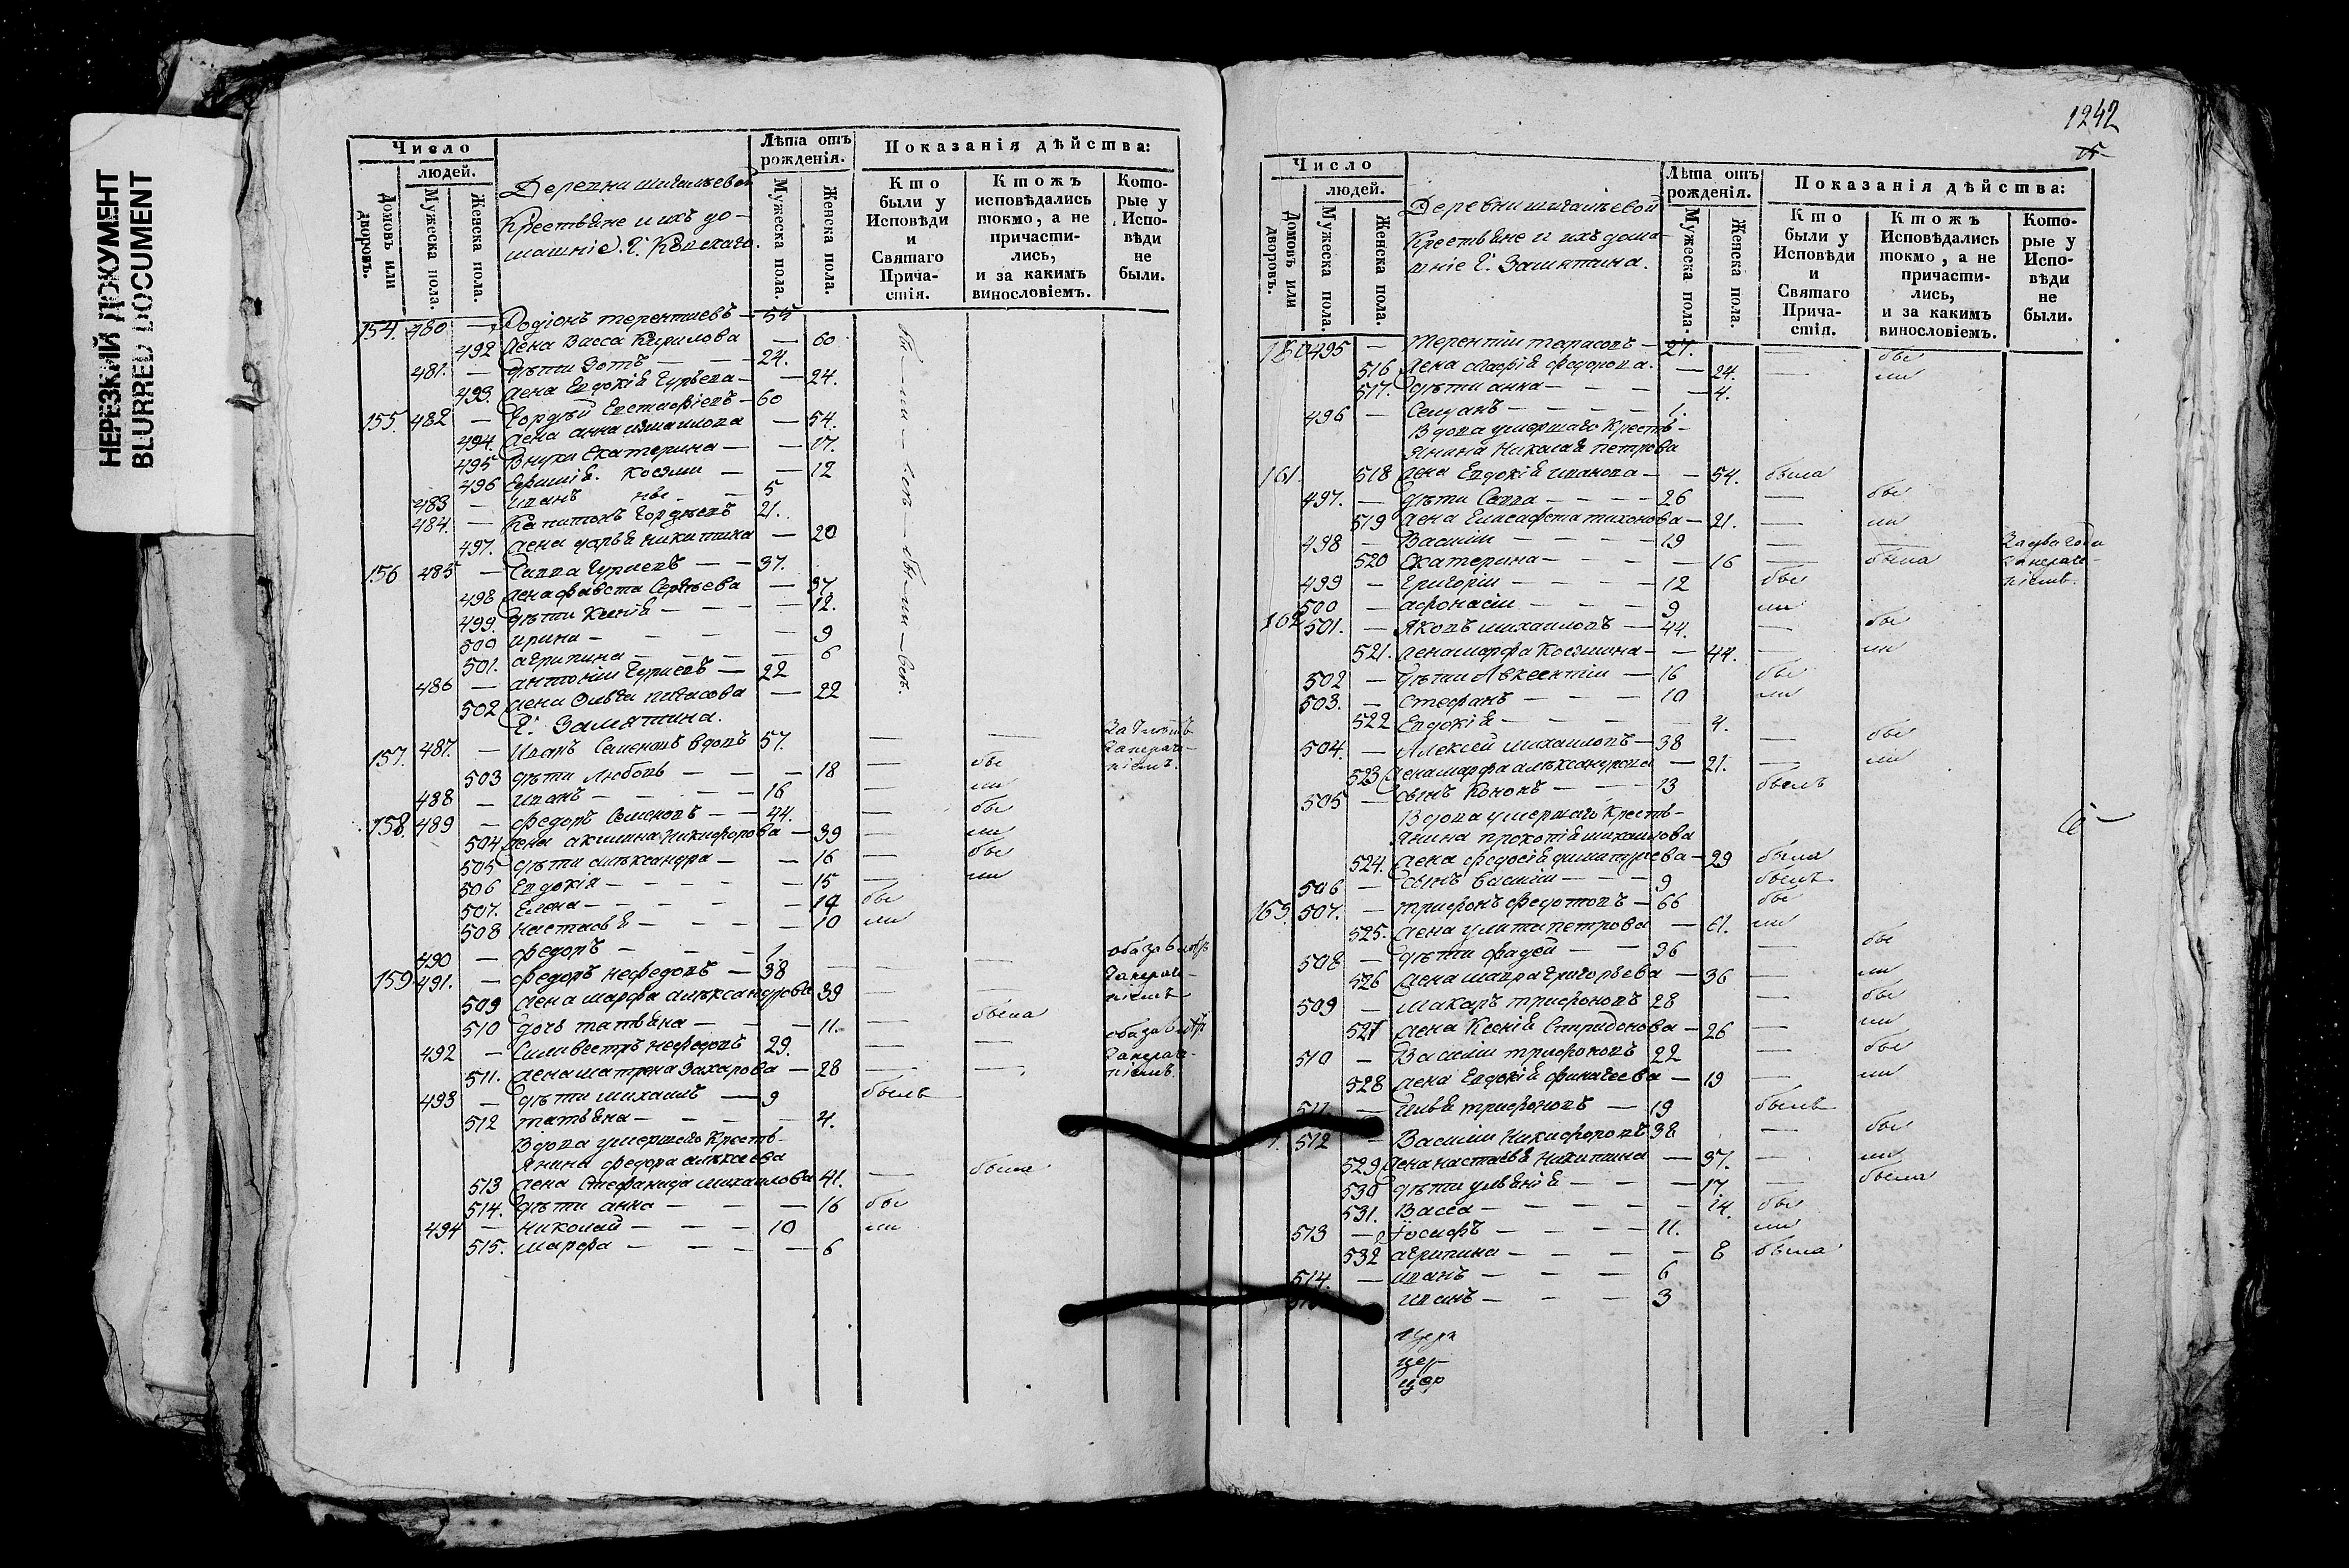 НЕРЕЗКИЙ ДОКУМЕНТ
BLURRED DOCUMENT
Число
людей.
Домовъ или дворовъ.
Мужеска пола.
Женска пола.
Деревни
Крестьяне и ихъ до-
машніе Г.
Лѣта отъ рожденія.
Мужеска пола.
Женска пола.
Показанія дѣйства:
Кто были у Исповѣди и Святаго Прича-стія.
Ктожъ исповѣдались токмо, а не причасти-лись, и за какимъ винословіемъ.
Кото-рые у Испо-вѣди не были.
154. 480 — Родіонъ терентиевъ — 55
492 Жена Васса Кирилова — 60
481. — дѣти Зотъ — 24.
493. Жена Евдокія Гурьева — 24.
155. 482 — Гордѣй Евстафіевъ — 60
494. Жена анна измаилова — 54.
495 Внуки Екатерина — 17.
496 — 12
483 — иванъ — 5
484. — Капитонъ Гордѣевъ 21.
497. Жена дарья никитина — 20
156 485 — Савва Гуриевъ — 37.
498 Жена фавста Сергѣева — 37
499. дѣти Ксенія — 12.
500 ирина — 9
501. агрипина — 6
486 — антоній Гуриевъ — 22
502 Жена Ольга — 22
Г. Замятина.
157. 487. — Иванъ Семеновъ вдовъ 57.
503 дѣти любовь — 18 — бы
488 — иванъ — 16 — ли
158. 489 — федоръ Семеновъ — 44. — бы
504 Жена акилина Никифорова — 39 — ли
505 дѣти александра — 16 — бы
506 Евдокія — 15 — ли
507. Елена — 14 бы
508 настасья — 10 ли
490 — федоръ — 1.
159 491. — федоръ нефедовъ — 38 — —
509 Жена марфа александрова 39 — —
510 дочь татьяна — 11. — была
492 — Силивестръ нефедовъ 29. — —
511. Жена матрена Захарова — 28 — —
493 — дѣти михаилъ — 9 былъ
512 татьяна — 4.
Вдова умершаго Кресть-
янина федора алексеева
513 Жена Стефанида михаилова 41. — была
514. дѣти анна — 16 бы
494 — николай — 10 ли
515. марфа — 6
1242
Число
людей.
Домовъ или дворовъ.
Мужеска пола.
Женска пола.
Деревни
Крестьяне и ихъ дома-
шніе Г. Замятина.
Лѣта отъ рожденія.
Мужеска пола.
Женска пола.
Показанія дѣйства:
Кто были у Исповѣди и Святаго Прича-стія.
Ктожъ Исповѣдались токмо, а не причасти-лись, и за какимъ винословіемъ.
Кото-рые у Испо-вѣди не были.
160 495 — терентіи тарасовъ — 27. — бы
516 Жена федорова. — 24. — ли
517. дѣти анна — 4.
496 — — 1.
Вдова умершаго Кресть-
янина Николая петрова
161. 518 Жена Евдокія иванова — 54. была
497. — дѣти Савва — 26 — бы
519 Жена Елисафета тихонова — 21. — ли
498 — Василіи — 19 — —
За два года
520 Екатерина — 16 — была
499 — Григоріи — 12 бы
500 — афонасіи — 9 ли
162 501. — Яковъ михаиловъ — 44. — бы
521. Жена марфа Космина — 44. — ли
502 — дѣти Авксентіи — 16 бы
503. — Стефанъ — 10 ли
522 Евдокія — 4.
504. — Алексей михаиловъ — 38 — бы
523 Жена марфа александрова — 21. — ли
505 — сынъ Кононъ — 13 былъ
Вдова умершаго Кресть-
янина михаилова
524. Жена федосія димитриева — 29 была
506 — сынъ Василіи — 9 былъ
163. 507. — трифонъ федотовъ — 66 бы
525. Жена улита петрова — 61. ли
508 — дѣти фадей — 36 — бы
526 Жена мавра григорьева — 36 — ли
509 — макаръ трифоновъ 28 — бы
527 Жена Ксенія Спиридонова — 26 — ли
510 — Василіи трифоновъ 22 — бы
528 Жена Евдокія — 19 — ли
511 — илья трифоновъ — 19 былъ
512 — Василіи Никифоровъ 38 — бы
529 Жена настасья никитина — 37. — ли
530 дѣти ульянія — 17. — была
531. Васса — 14. бы
513 — Іосифъ — 11. ли
532 агрипина — 8 была
514. — иванъ — 6
иванъ — 3